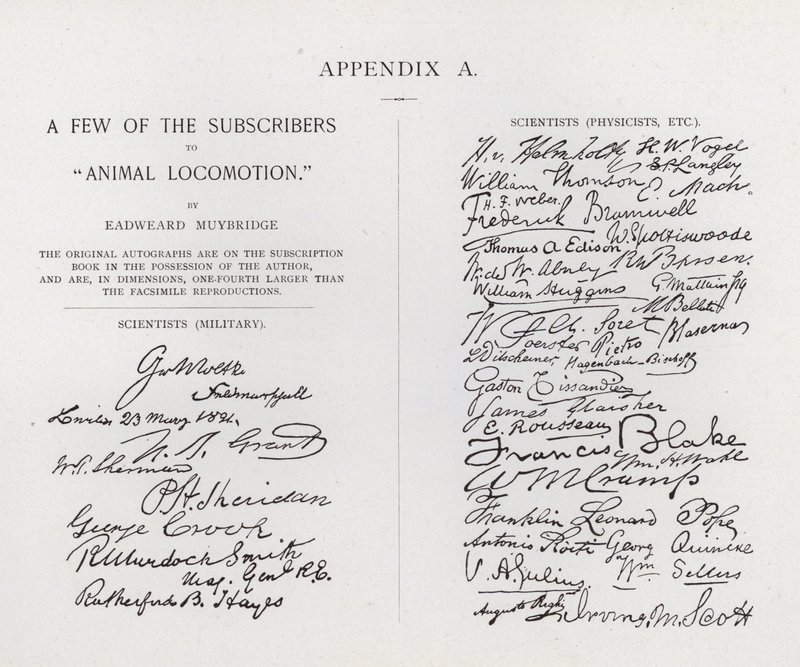 APPENDIX A.
A FEW OF THE SUBSCRIBERS
TO
"ANIMAL LOCOMOTION."
BY
EADWEARD MUYBRIDGE
THE ORIGINAL AUTOGRAPHS ARE ON THE SUBSCRIPTION
BOOK IN THE POSSESSION OF THE AUTHOR,
AND ARE, IN DIMENSIONS, ONE-FOURTH LARGER THAN
THE FACSIMILE REPRODUCTIONS.
SCIENTISTS (MILITARY).
Gr v Moltke
Feldmarschall
23
U. S. Grant
W. T. Sherman
P. H. Sheridan
George Crook
R Murdoch Smith
Maj. Genl R.E.
Rutherford B. Hayes
SCIENTISTS (PHYSICISTS, ETC.).
H. v. Helmholtz H. W. Vogel
S. P. Langley
William Thomson E. Mach.
H. F. Weber.
Frederick Bramwell
Thomas A Edison W. Spottiswoode
W. de W. Abney R W Bunsen.
William Huggins
M Bellati
Ch. Soret
Foerster Pietro Blaserna
Hagenbach-Bischoff
Gaston Tissandier
James Glaisher
E. Rousseau
Francis Blake
Wm. H. Wahl
W M Cramp
Franklin Leonard Pope
Antonio Roiti Georg Quincke
V. A. Julius. Wm Sellers
Augusto Righi Irving. M. Scott